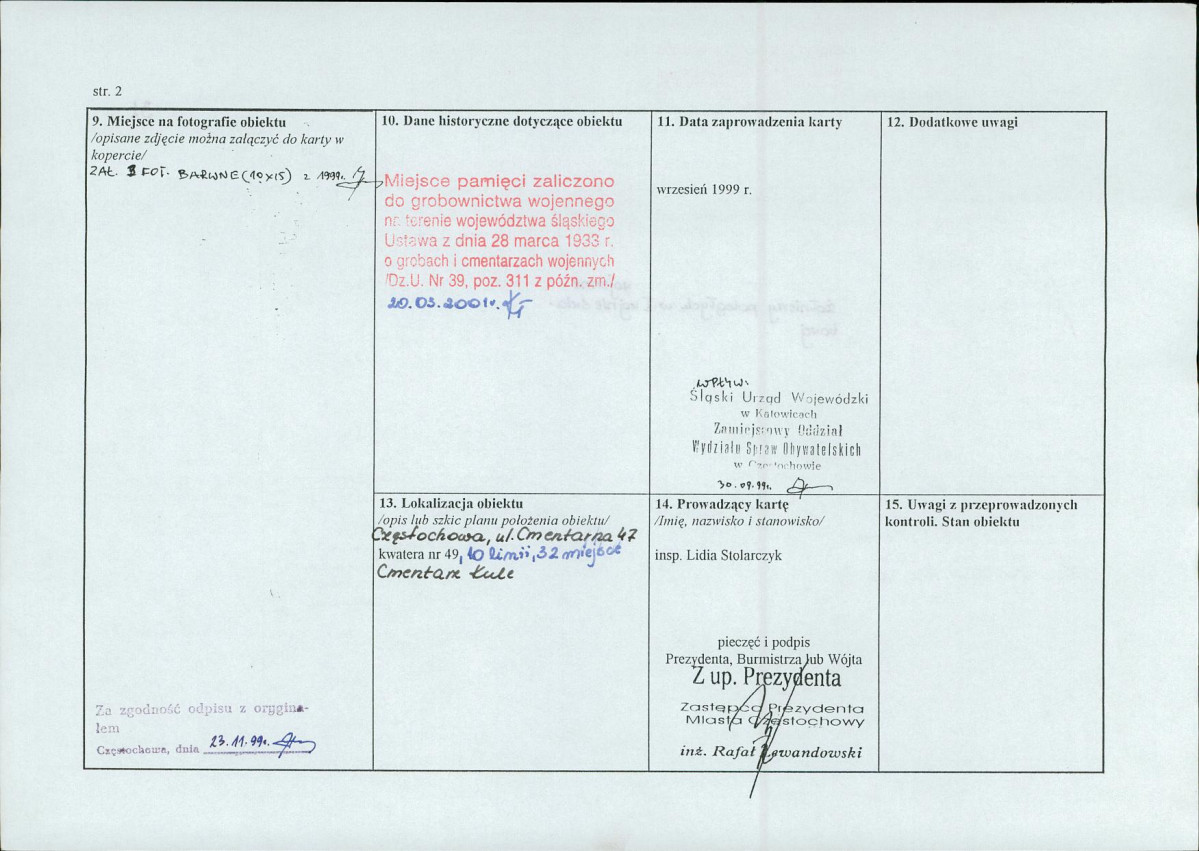 str. 2
9. Miejsce na fotografie obiektu
/opisane zdjęcie można załączyć do karty w
kopercie/
ZAŁ. 3 FOT. BARWNE (10x15) z 1999r.
10. Dane historyczne dotyczące obiektu
Miejsce pamięci zaliczono
do grobownictwa wojennego
na terenie województwa śląskiego
Ustawa z dnia 28 marca 1933 r.
o grobach i cmentarzach wojennych
/Dz.U. Nr 39, poz. 311 z późn. zm./
20.03.2001r.
11. Data zaprowadzenia karty
wrzesień 1999 r.
WPŁYW.
Śląski Urząd Wojewódzki
w Katowicach
Zamiejscowy Oddział
Wydziału Spraw Obywatelskich
w Częstochowie
30.09.99r.
12. Dodatkowe uwagi
13. Lokalizacja obiektu
/opis lub szkic planu położenia obiektu/
Częstochowa, ul. Cmentarna 47
kwatera nr 49, 10 linii, 32 miejsce
Cmentarz Kule
14. Prowadzący kartę
/Imię, nazwisko i stanowisko/
insp. Lidia Stolarczyk
pieczęć i podpis
Prezydenta, Burmistrza lub Wójta
Z up. Prezydenta
Zastępca Prezydenta
Miasta Częstochowy
inż. Rafał Lewandowski
15. Uwagi z przeprowadzonych
kontroli. Stan obiektu
Za zgodność odpisu z orygina-
łem
Częstochowa, dnia 23.11.99r.